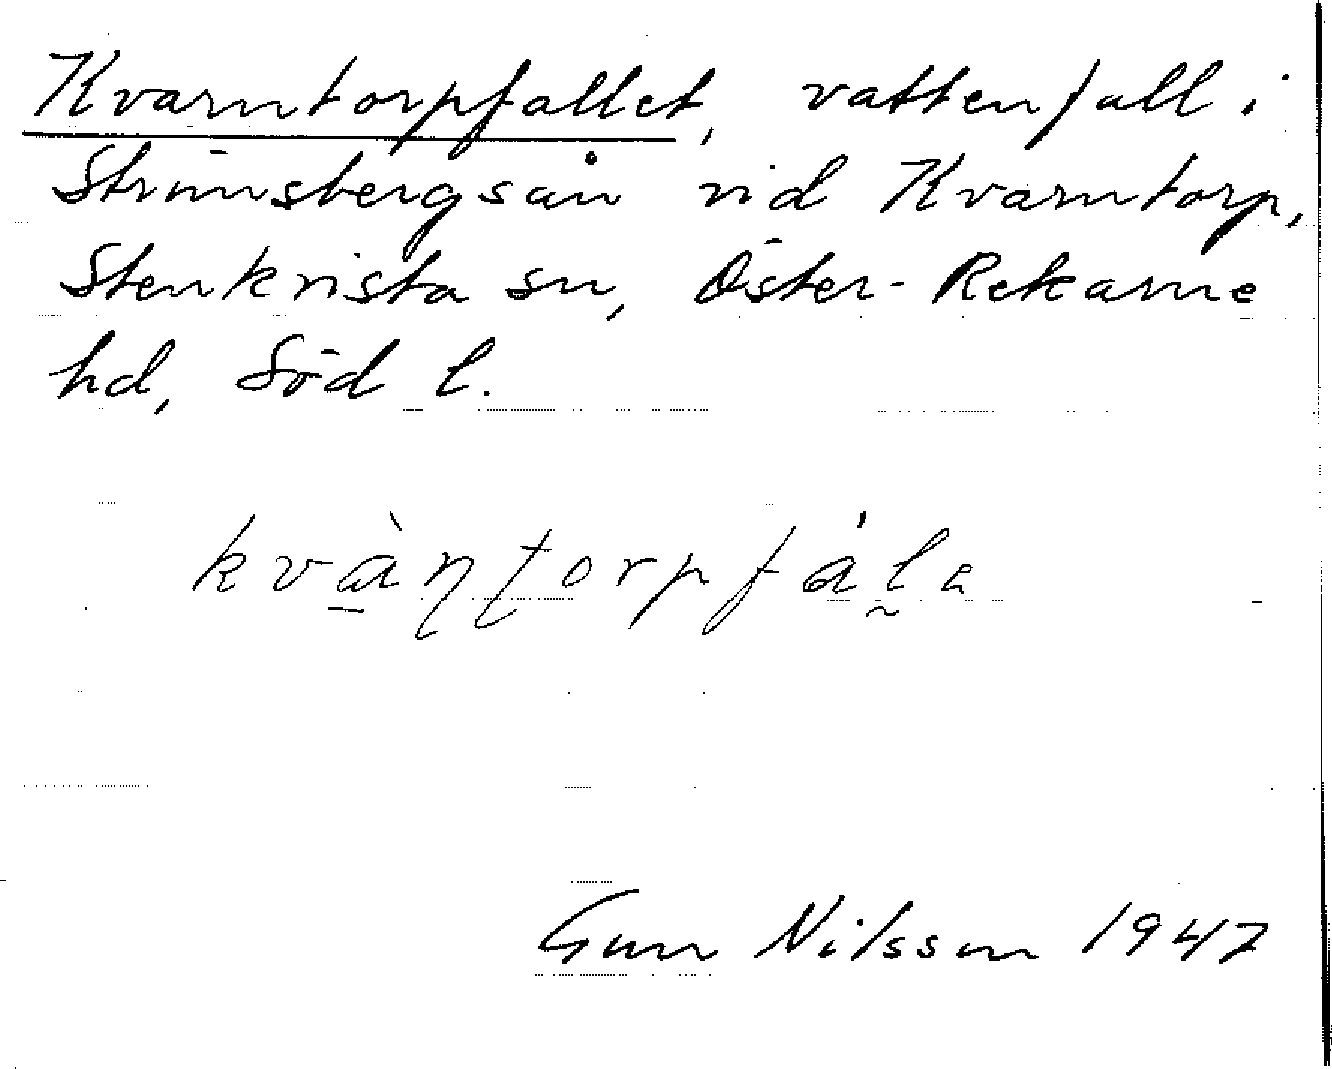 Kvarntorpfallet, vattenfall i
Strömsbergsån vid Kvarntorp,
Stenkvista sn, Öster-Rekarne
hd, Söd l.
Gun Nilsson 1947